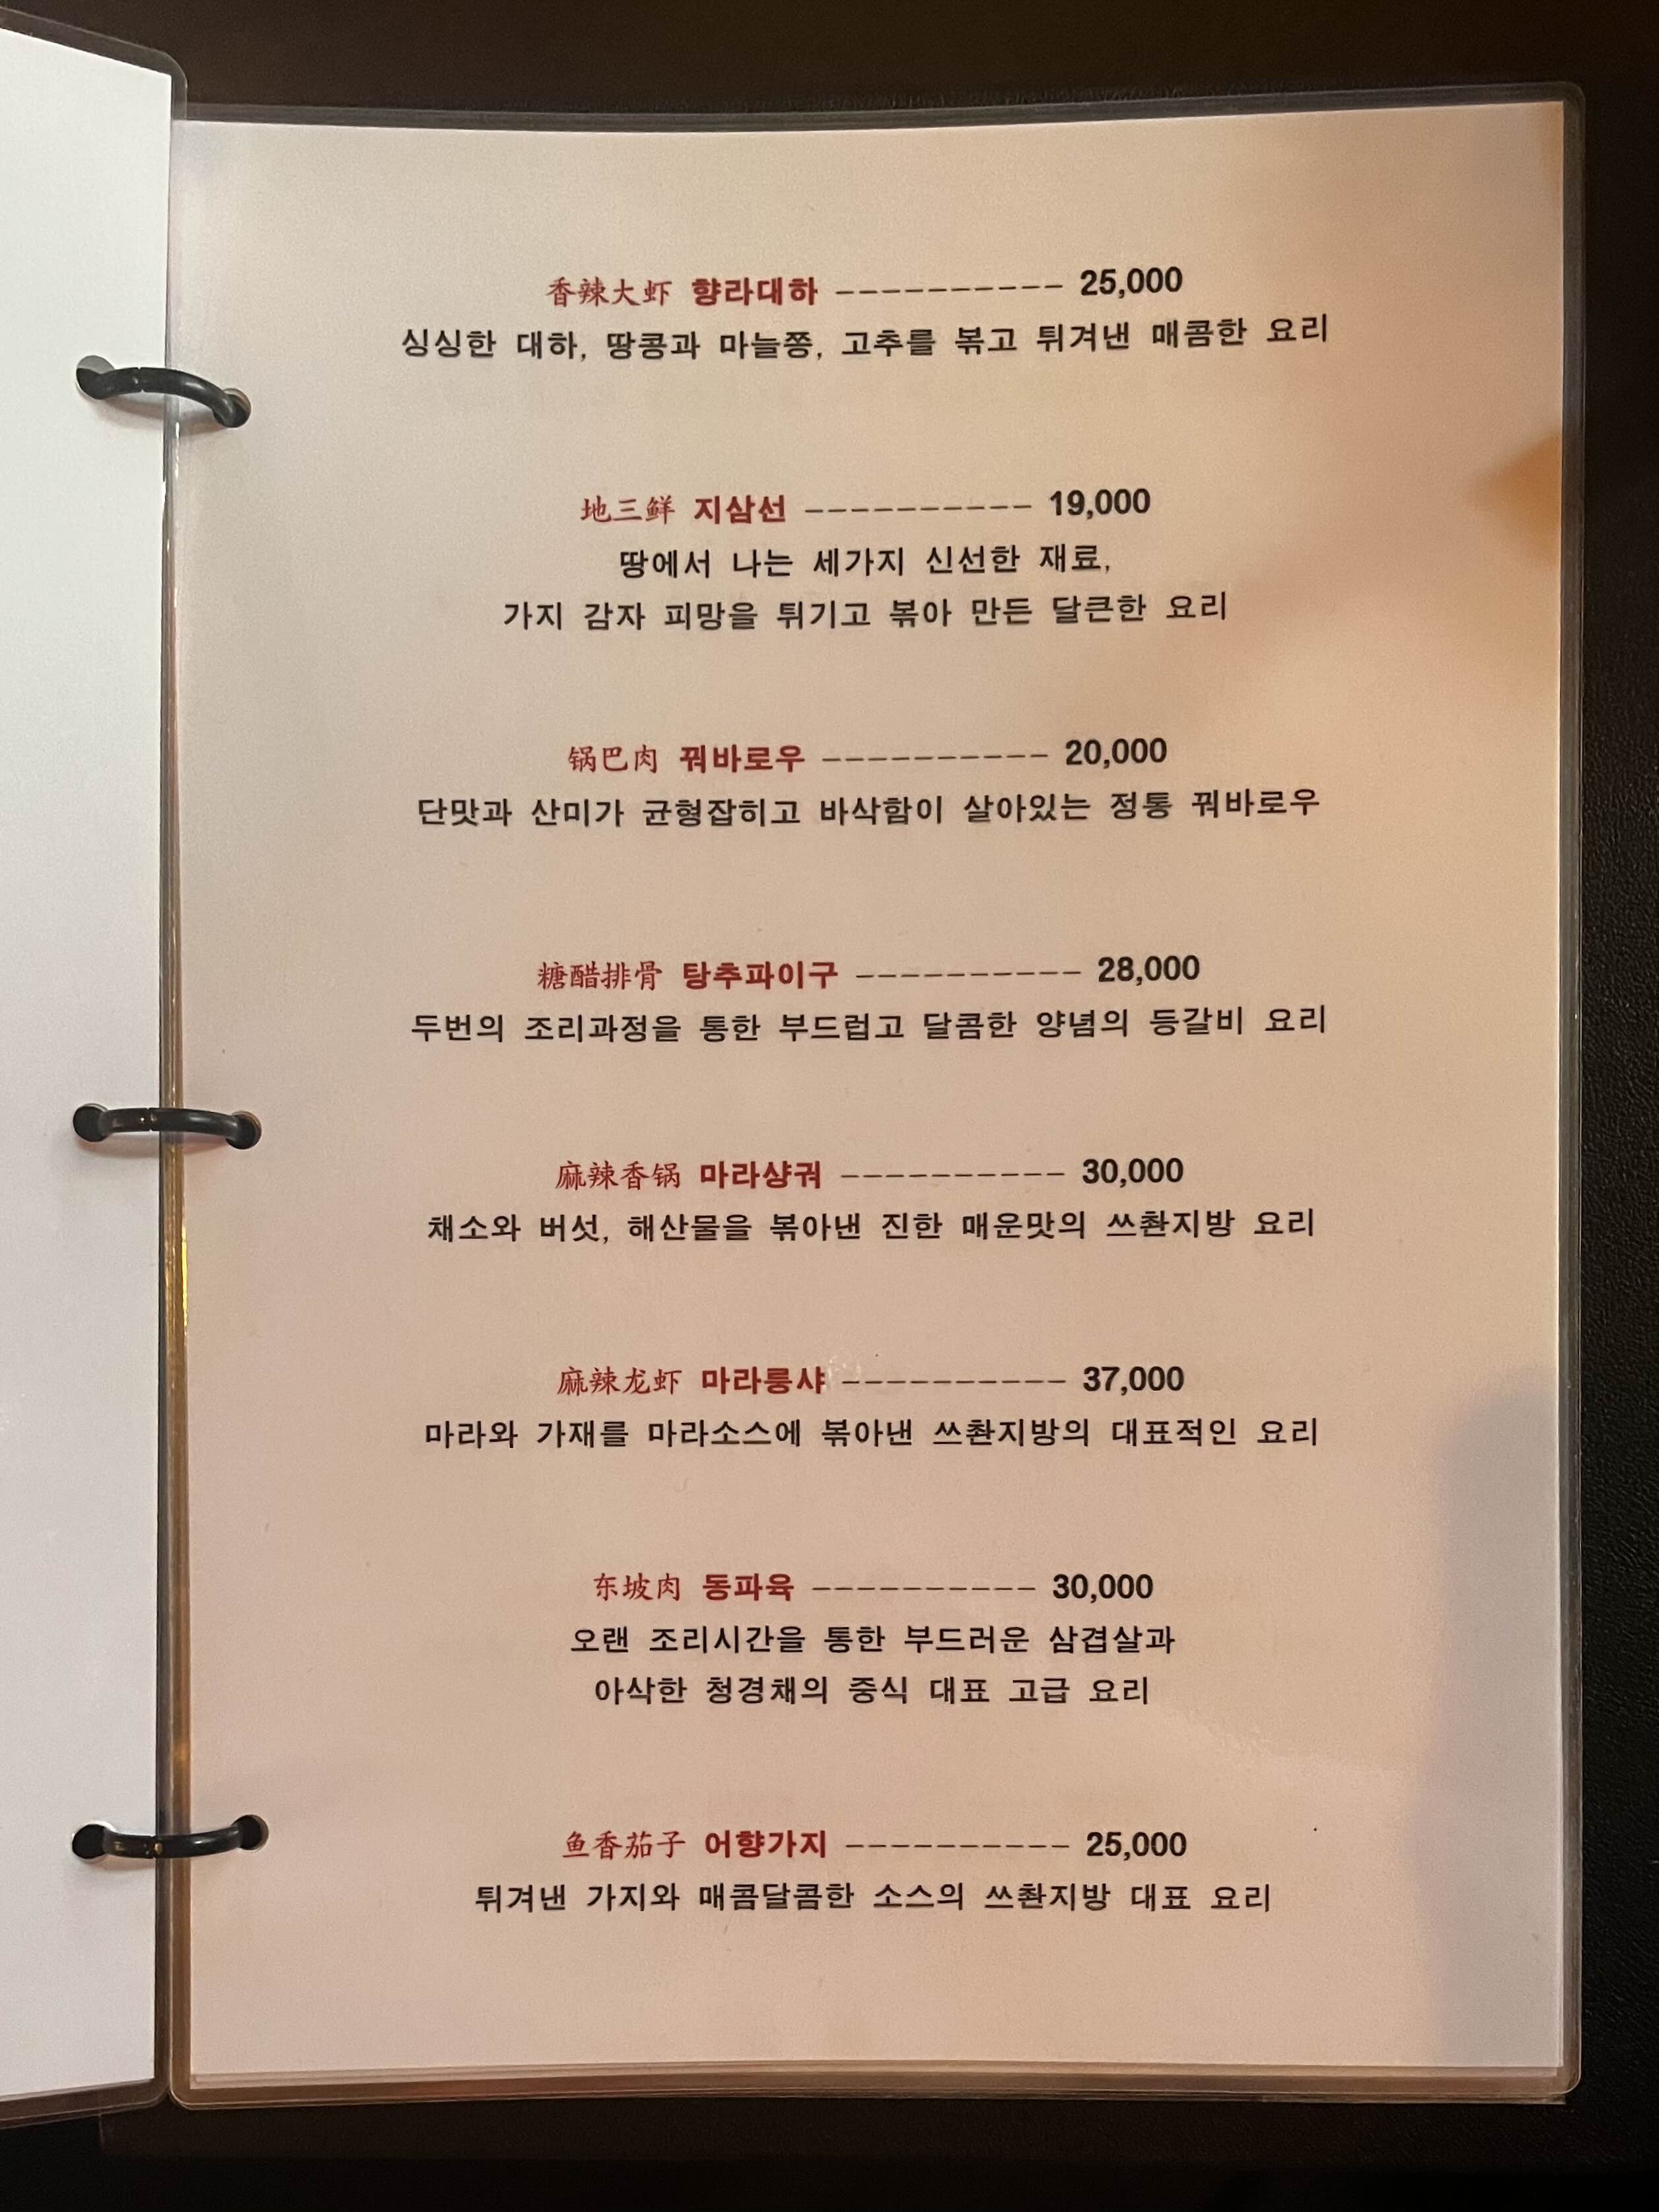 香辣大虾 향라대하 ---------- 25,000
싱싱한 대하, 땅콩과 마늘쫑, 고추를 볶고 튀겨낸 매콤한 요리
地三鲜 지삼선 ---------- 19,000
땅에서 나는 세가지 신선한 재료,
가지 감자 피망을 튀기고 볶아 만든 달큰한 요리
锅巴肉 꿔바로우 ---------- 20,000
단맛과 산미가 균형잡히고 바삭함이 살아있는 정통 꿔바로우
糖醋排骨 탕추파이구 ---------- 28,000
두번의 조리과정을 통한 부드럽고 달콤한 양념의 등갈비 요리
麻辣香锅 마라샹궈 ---------- 30,000
채소와 버섯, 해산물을 볶아낸 진한 매운맛의 쓰촨지방 요리
麻辣龙虾 마라룽샤 ---------- 37,000
마라와 가재를 마라소스에 볶아낸 쓰촨지방의 대표적인 요리
东坡肉 동파육 ---------- 30,000
오랜 조리시간을 통한 부드러운 삼겹살과
아삭한 청경채의 중식 대표 고급 요리
鱼香茄子 어향가지 ---------- 25,000
튀겨낸 가지와 매콤달콤한 소스의 쓰촨지방 대표 요리